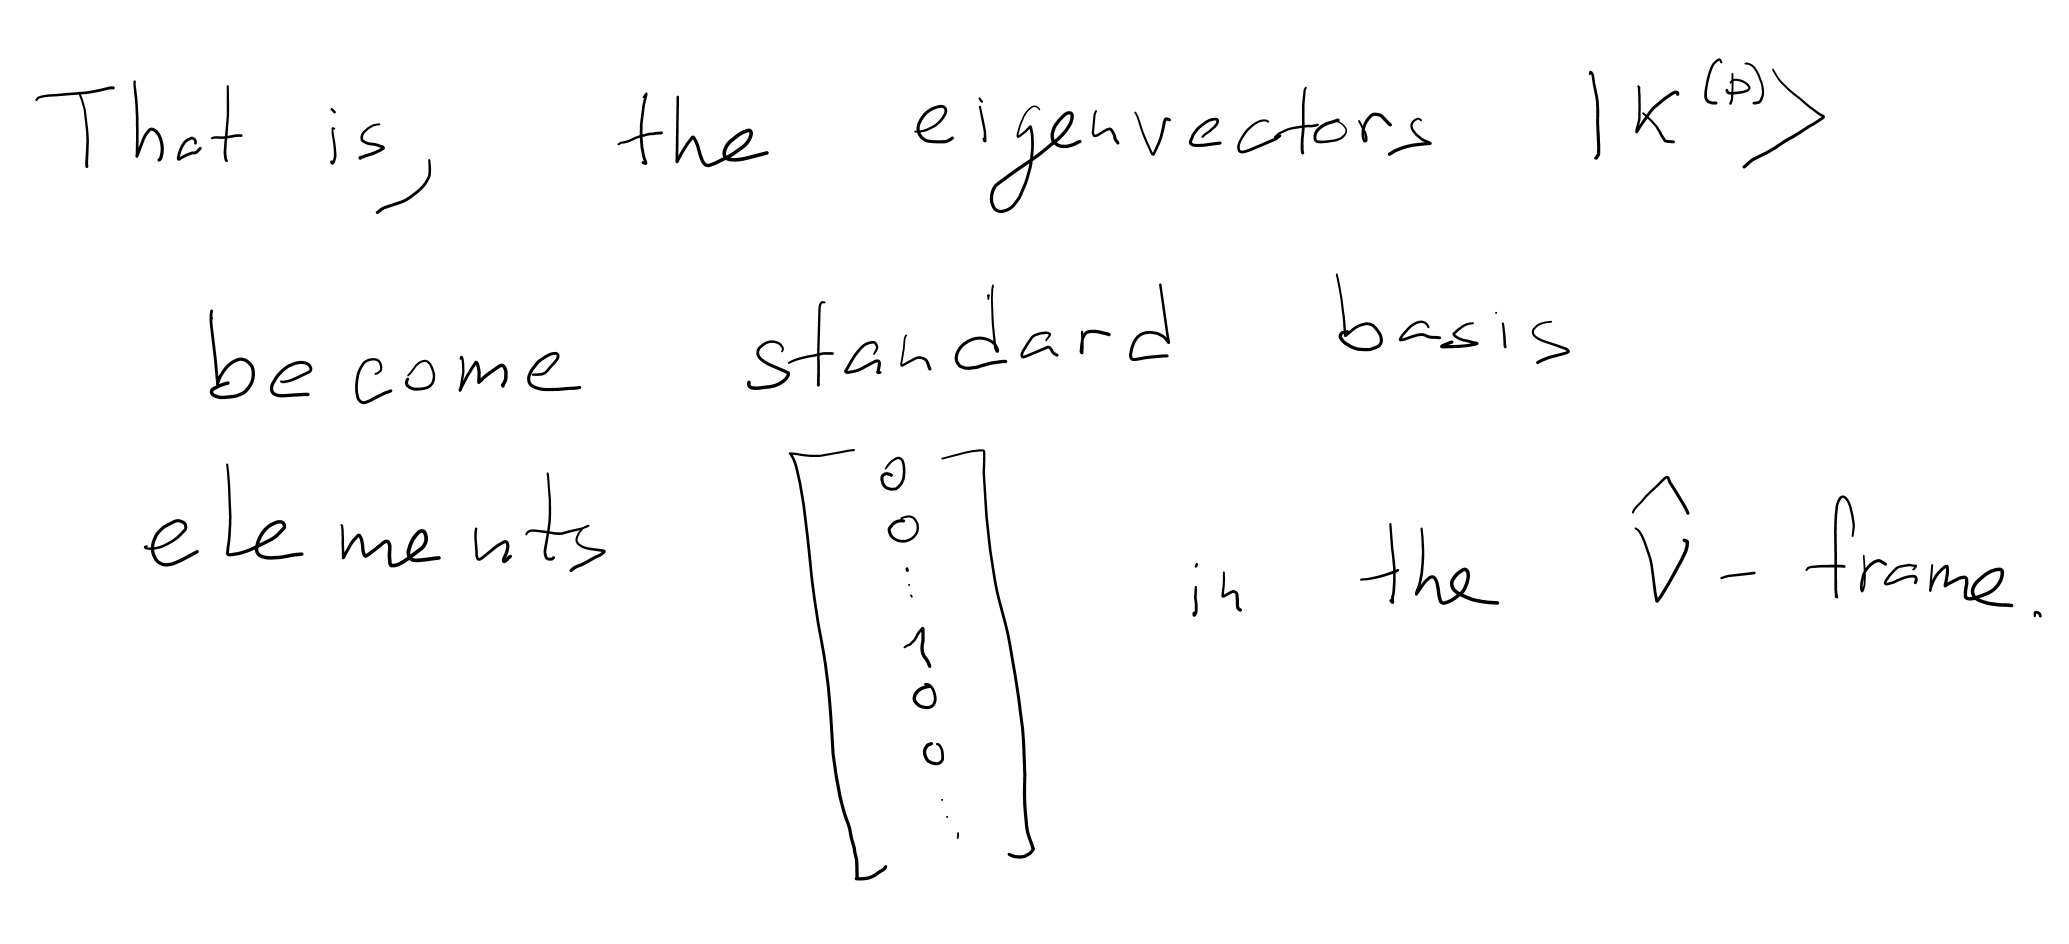 That is, the eigenvectors |K^(p)>
become standard basis
elements [0 0 ... 1 0 0 ...] in the V̂ - frame.